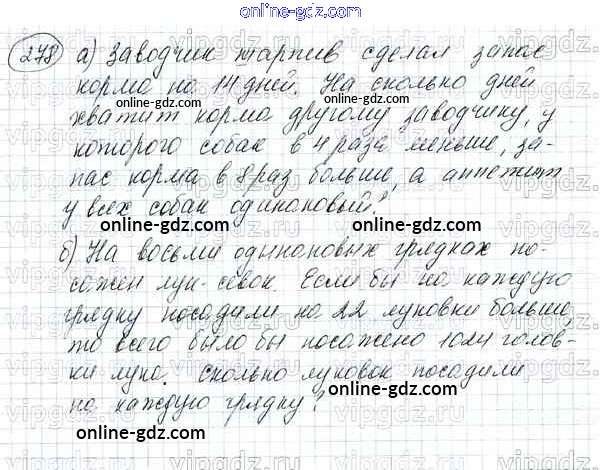 online-gdz.com
278 а) Заводчик таршив сделал запас
корма на 14 дней. На сколько дней
хватит корма другому заводчику, у
которого собак в 4 раза меньше, за-
пас корма в 8 раз больше, а аппетит
у всех собак одинаковый?
б) На восьми одинаковых грядках по-
сажен лук-севок. Если бы на каждую
грядку посадили на 22 луковки больше,
то всего было бы посажено 1024 голов-
ки лука. Сколько луковок посадили
на каждую грядку?
online-gdz.com
online-gdz.com
online-gdz.com
online-gdz.com
online-gdz.com
online-gdz.com
online-gdz.com
online-gdz.com
vipgdz.ru